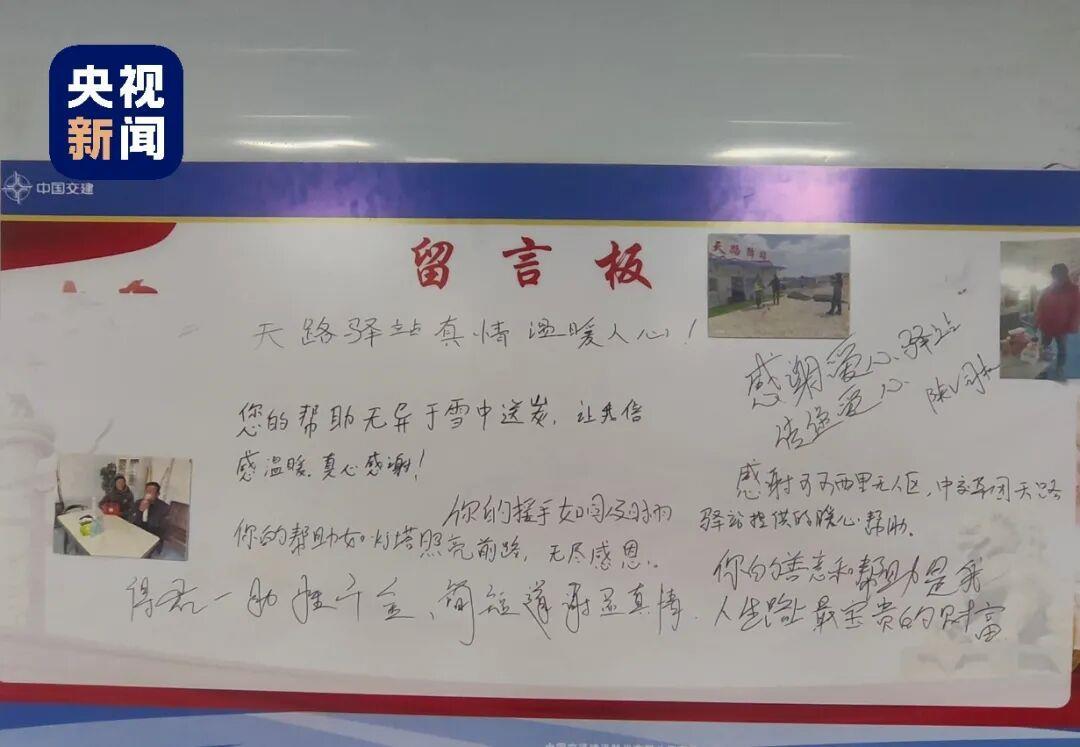 央视
新闻
中国交建
留言板
天路驿站
天路驿站真情温暖人心!
感谢爱心驿站
传递爱心
陈
您的帮助无异于雪中送炭,让我倍
感温暖,真心感谢!
感谢可可西里无人区,中交集团天路
驿站提供的暖心帮助.
你的援手如同及时雨
你的帮助如灯塔照亮前路,无尽感恩.
你的善意和帮助力是我
人生路上最宝贵的财富
得君一助胜千金、简短道谢显真情.